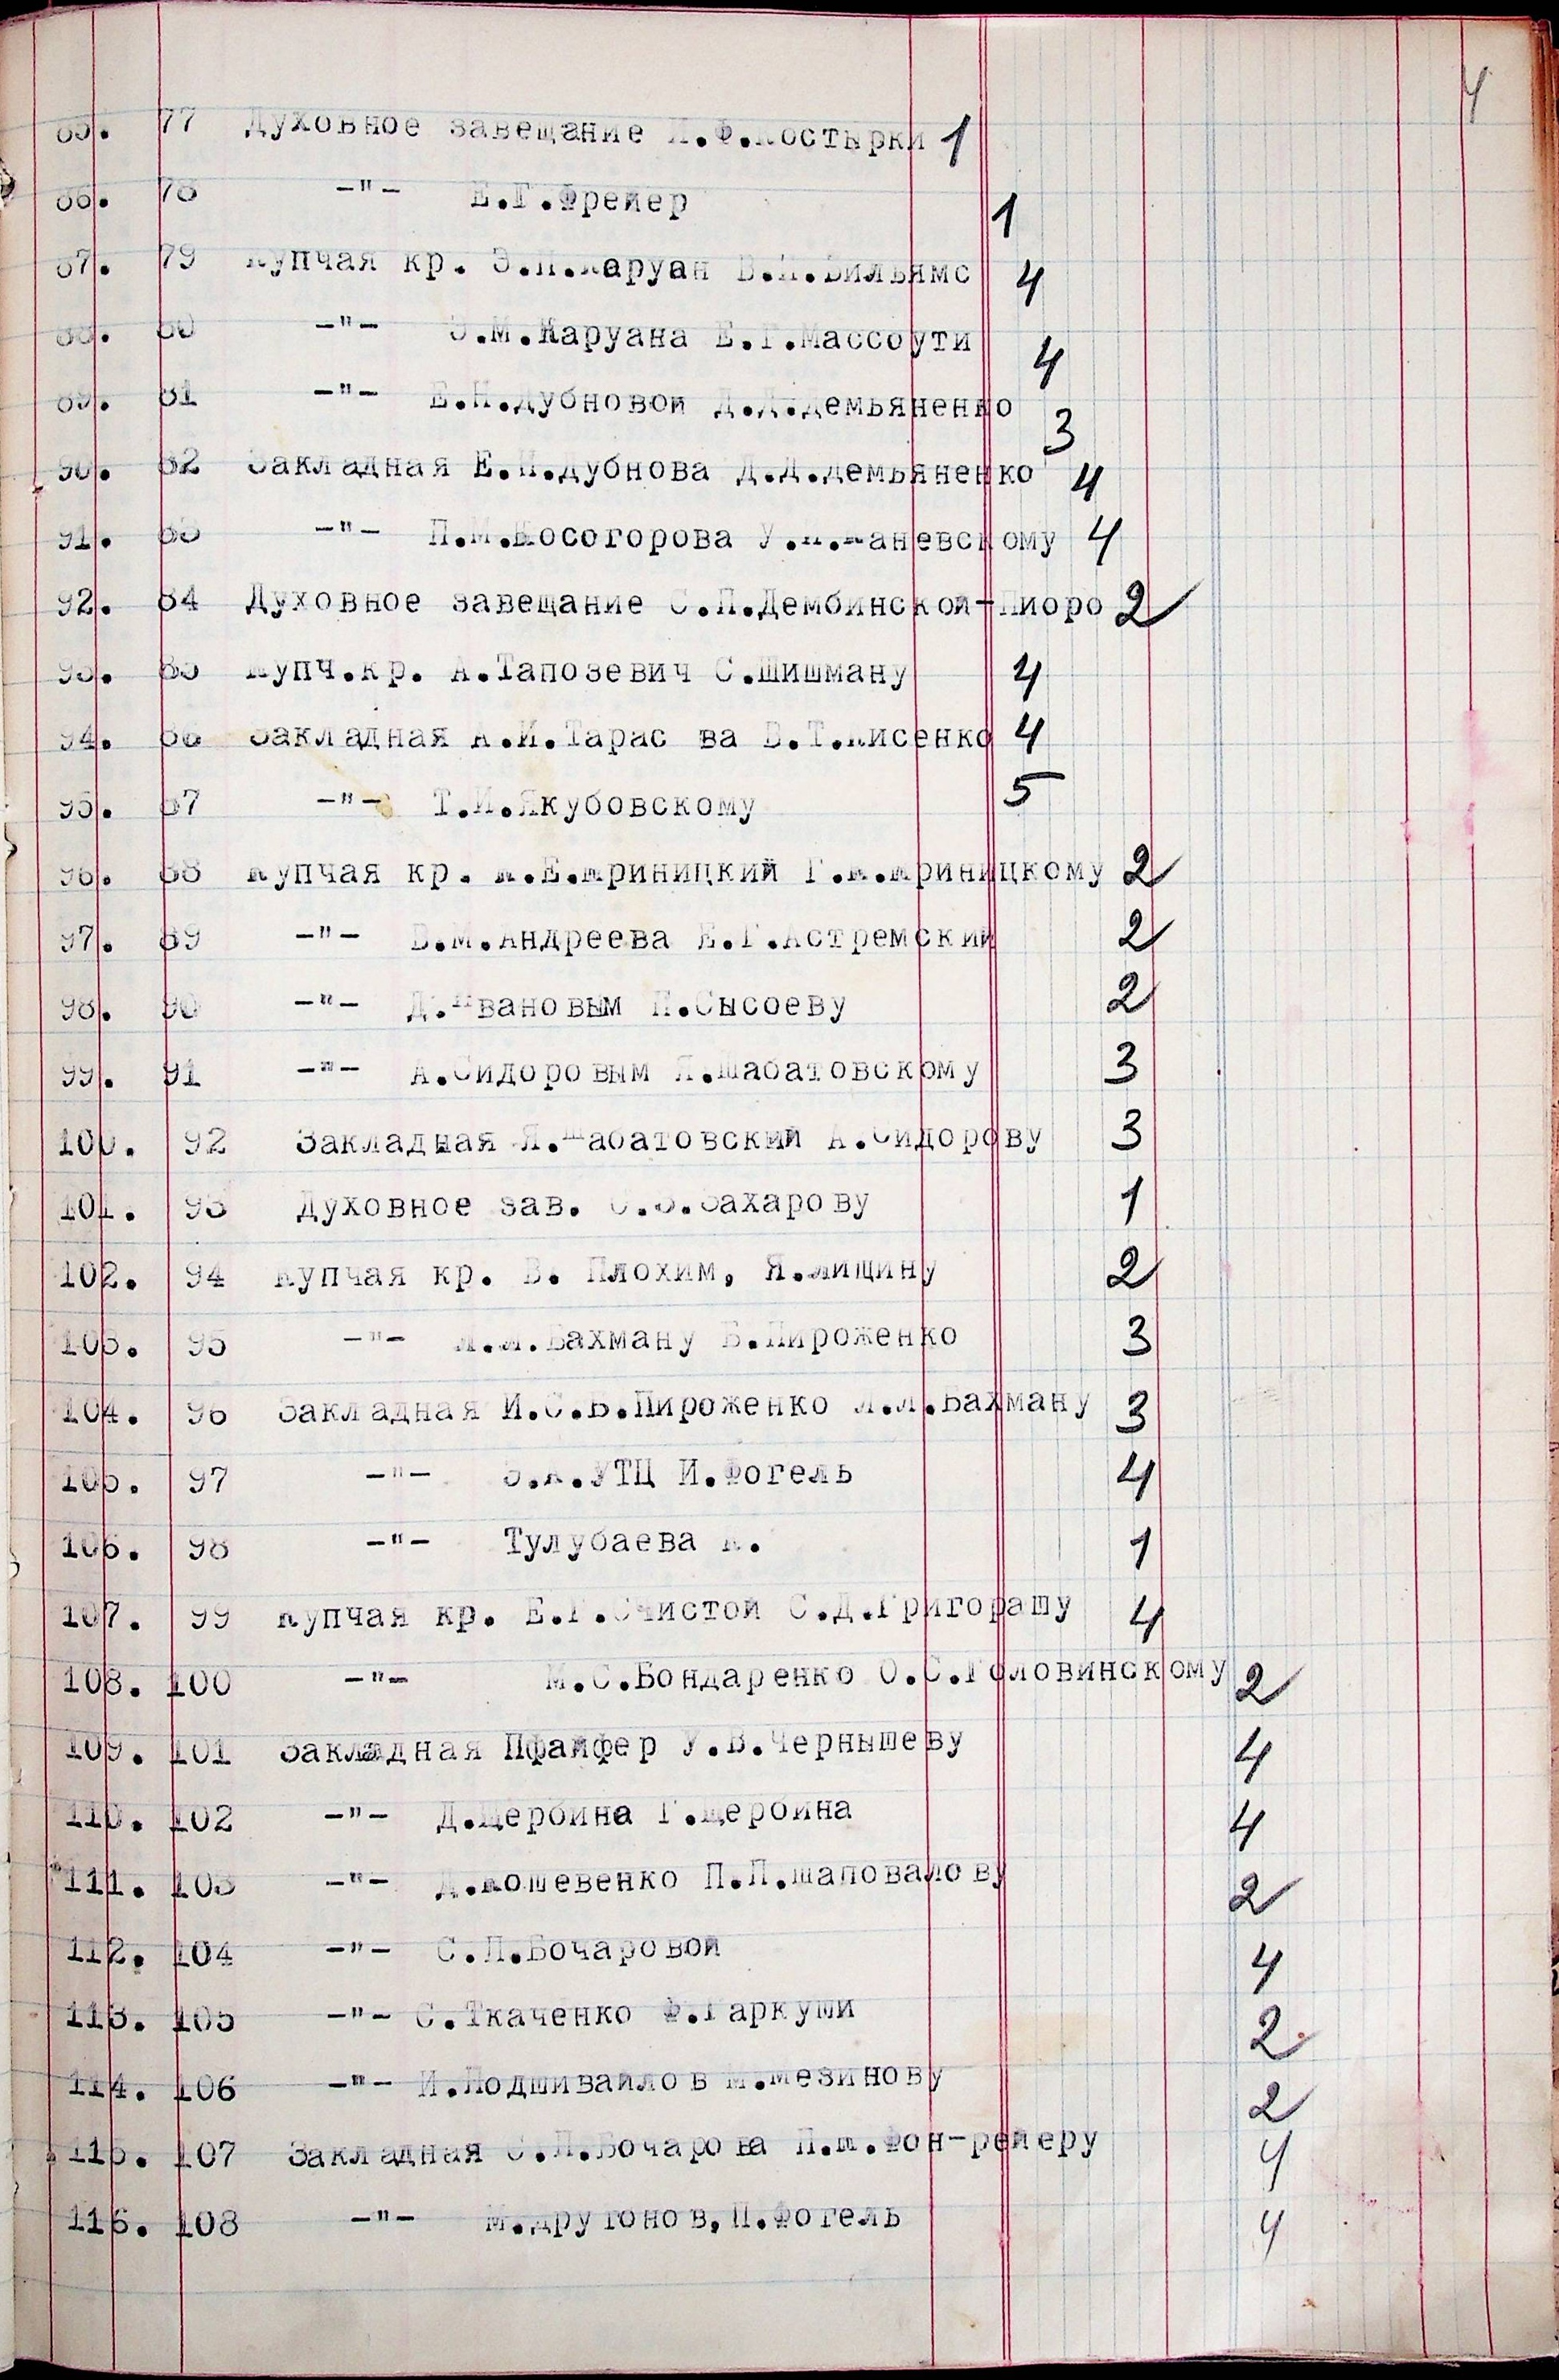 4
85. 77 Духовное завещание Ф.Костырки 1
86. 78 -"- Е.Г.Фрейер 1
87. 79 Купчая кр. Каруан Вильямс 4
88. 80 -"- Э.М.Каруана Е.Г.Массоути 4
89. 81 -"- Е.Н.Дубновой Д.Д.Демьяненко 3
90. 82 Закладная Е.Н.Дубнова Д.Д.Демьяненко 4
91. 83 -"- П.М.Косогорова Каневскому 4
92. 84 Духовное завещание С.П.Дембинской-Пиоро 2
93. 85 Купч.кр. А.Тапозевич С.Шишману 4
94. 86 Закладная А.И.Тарас ва В.Т.Кисенко 4
95. 87 -"- Т.И.Якубовскому 5
96. 88 Купчая кр. К.Е.Криницкий Г.К.Криницкому 2
97. 89 -"- В.М.Андреева Е.Г.Астремский 2
98. 90 -"- Д.Ивановым П.Сысоеву 2
99. 91 -"- А.Сидоровым Я.Шабатовскому 3
100. 92 Закладная Я.Шабатовский А.Сидорову 3
101. 93 Духовное зав. Захарову 1
102. 94 Купчая кр. В. Плохим, Я.Лищину 2
103. 95 -"- Л.Л.Бахману Б.Пироженко 3
104. 96 Закладная И.С.Б.Пироженко Л.Л.Бахману 3
105. 97 -"- Э.К.УТЦ И.Фогель 4
106. 98 -"- Тулубаева К. 1
107. 99 Купчая кр. Е.Г.Счистой С.Д.Григорашу 4
108. 100 -"- М.С.Бондаренко О.С.Головинскому 2
109. 101 Закладная Пфайфер У.В.Чернышеву 4
110. 102 -"- Д.Щербина Г.Щербина 4
111. 103 -"- Д.Кошевенко П.П.Шаповалову 2
112. 104 -"- С.П.Бочаровой 4
113. 105 -"- С.Ткаченко Ф.Гаркуши 2
114. 106 -"- И.Подшивайлов М.Мезинову 2
115. 107 Закладная С.П.Бочарова П.Ш.Фон-рейеру 4
116. 108 -"- М.Другонов,П.Фогель 4